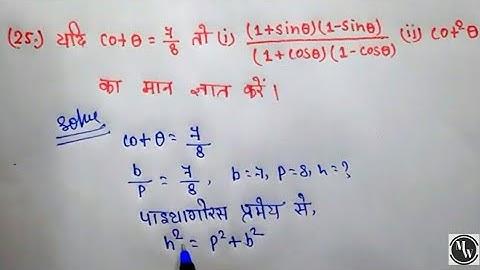 (25.) यदि cotθ = 7/8 तो (i) (1+sinθ)(1-sinθ)/(1+cosθ)(1-cosθ) (ii) cot²θ
का मान ज्ञात करें।
Solve
cotθ = 7/8
b/p = 7/8, b=7, p=8, h=?
पाइथागोरस प्रमेय से,
h² = p²+b²
MW